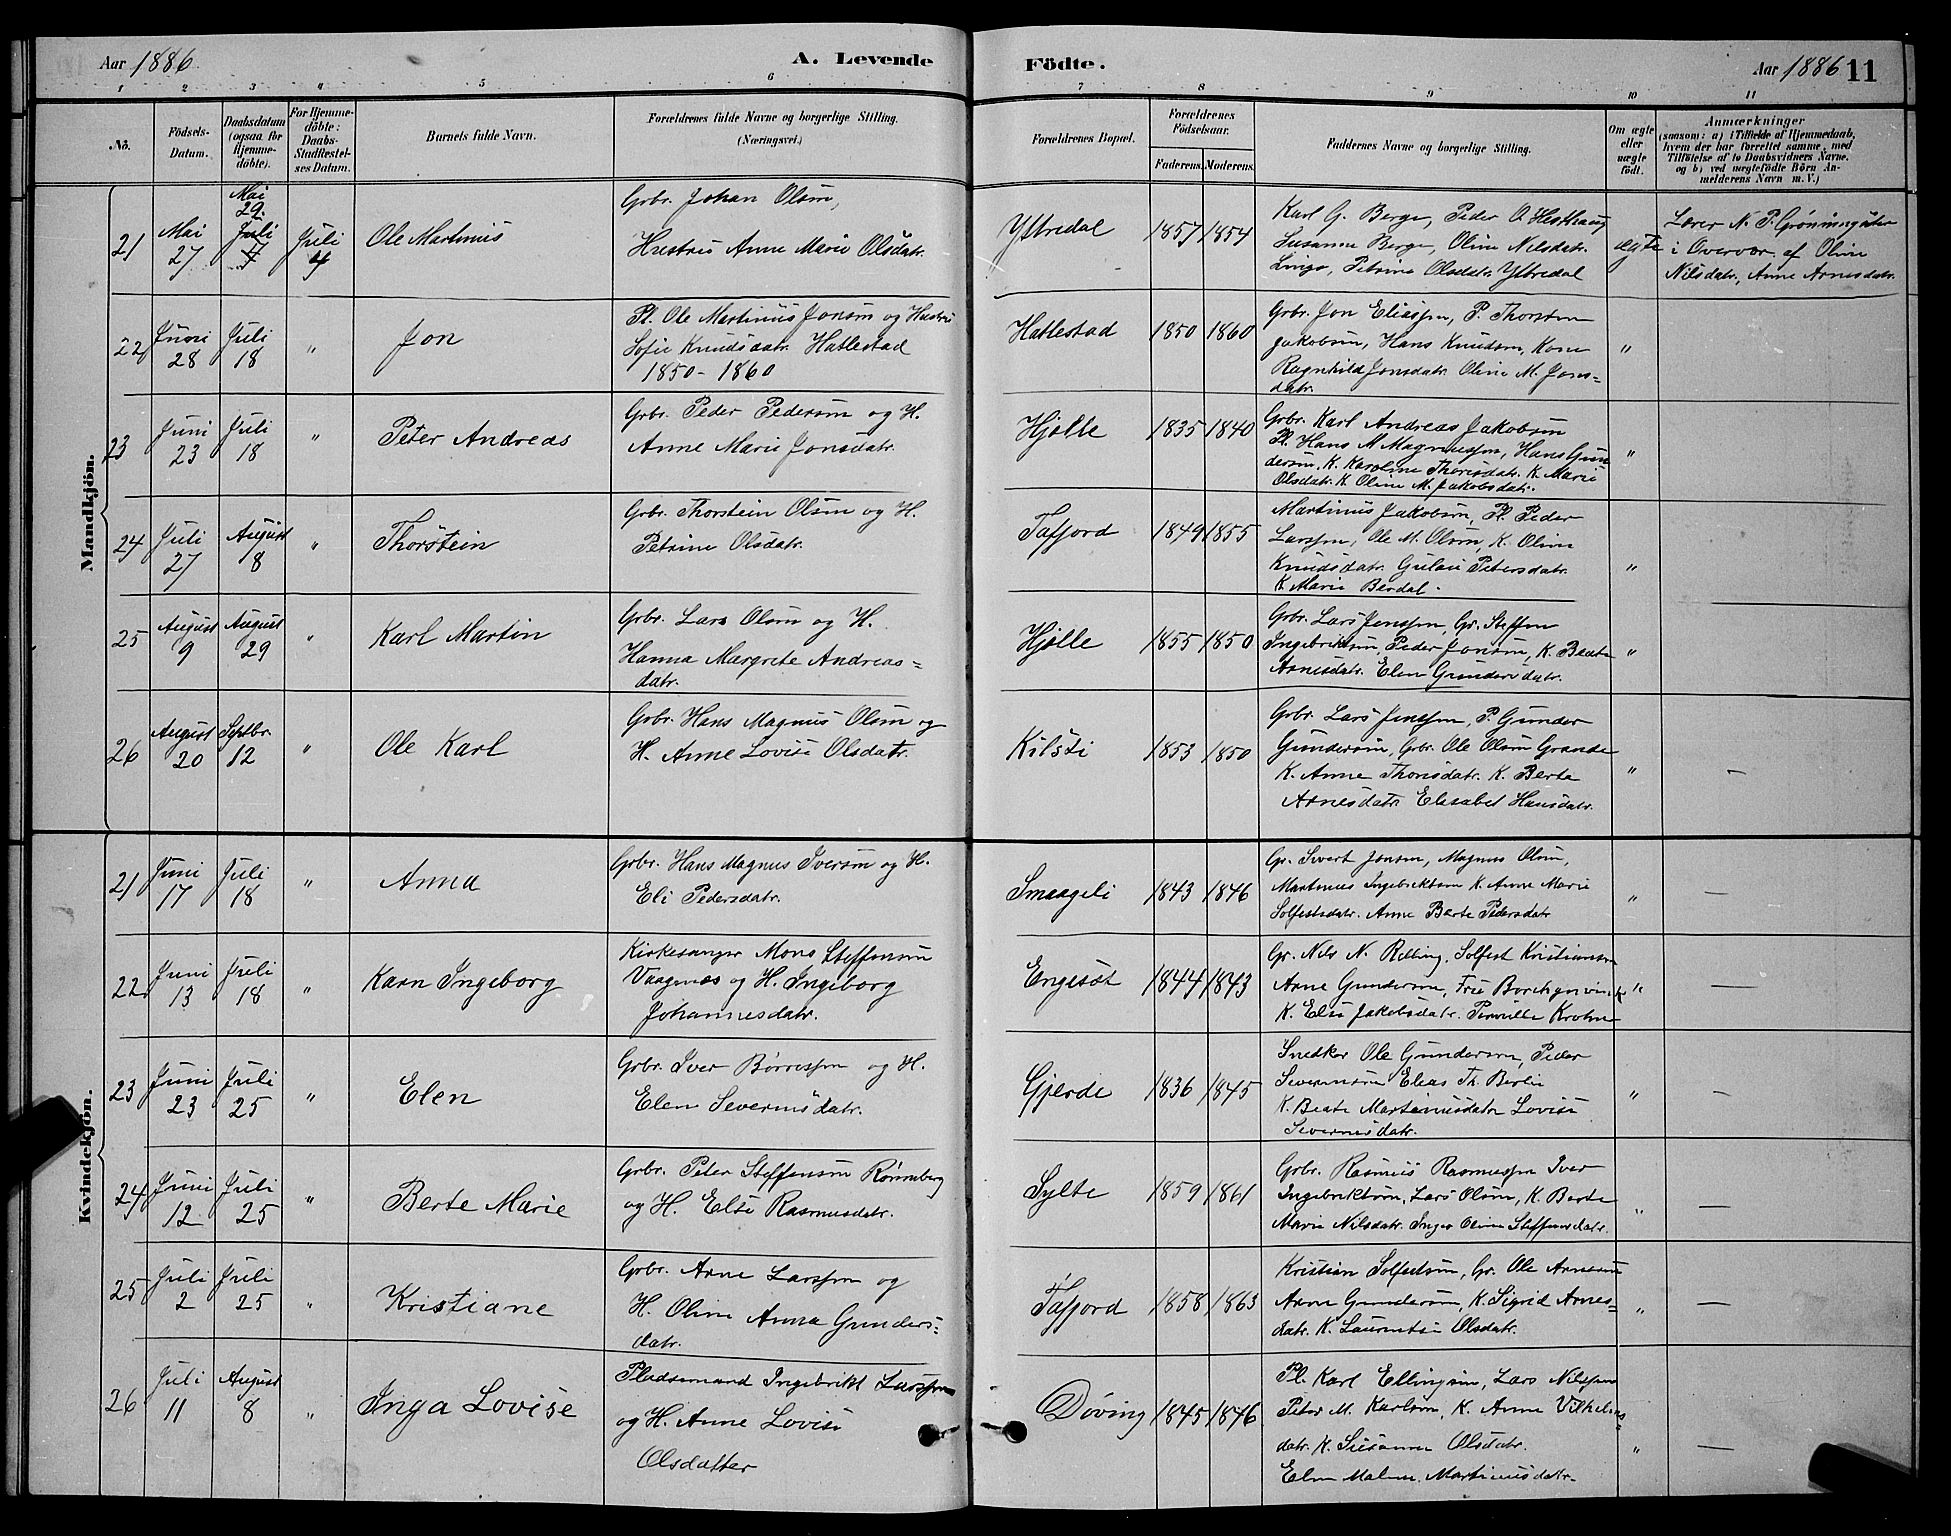 Aar 1886.
A. Levende
Födte.
Aar 1886 11
1 2 3 4 5 6 7 8 9 10 11
No.
Födsels-
Datum.
Daabsdatum
(ogsaa for
Hjemme-
döbte).
For Hjemme-
döbte:
Daabs-
Stadfæstel-
ses Datum.
Barnets fulde Navn.
Forældrenes fulde Navne og borgerlige Stilling.
(Næringsvei.)
Forældrenes Bopæl.
Forældrenes
Födselsaar.
Faderens. Moderens.
Faddernes Navne og borgerlige Stilling.
Om ægte
eller
uægte
födt.
Anmærkninger
(saasom: a) i Tilfælde af Hjemmedaab,
hvem der har forrettet samme, med
Tilföielse af to Daabsvidners Navne.
og b) ved uægtefödte Börn An-
melderens Navn m. V.)
Mandkjön.
21 Mai 27 Mai 29. Juli Juli 4 Ole Martinus
Grbr. Johan Olsen,
Hustru Anne Marie Olsdatr.
Yttredal 1857 1854
Karl G. Berge, Peder O. Hesthaug
Susanne Berge, Oline Nilsdatr.
Linge, Petrine Olsdatr. Yttredal
ægte
Lærer N. P. Grønningsæter
i Overvær af Oline
Nilsdatr, Anne Arnesdatr.
22 Juni 28 Juli 18 " Jon
Pl. Ole Martinus Jonsen og Hustru
Sofie Knudsdatr. Hatlestad
1850 - 1860
Hatlestad 1850 1860
Grbr. Jon Eliassen, P. Thorsten
Jakobsen, Hans Knudsen, Kone
Ragnhild Jonsdatr. Oline M. Jons=
datr.
"
23 Juni 23 Juli 18 " Peter Andreas
Grbr. Peder Pedersen og H.
Anne Marie Jonsdatr.
Hjelle 1835 1840
Grbr. Karl Andreas Jakobsen
Pl. Hans M Magnussen, Hans Gun
dersen, K. Karoline Thoresdatr. K. Marie
Olsdatr. K. Oline M. Jakobsdatr.
"
24 Juli 27 August 8 " Thorstein
Grbr. Thorstein Olsen og H.
Petrine Olsdatr.
Tafjord 1849 1855
Martinus Jakobsen, Pl. Peder
Larssen, Ole M. Olsen, K. Oline
Knudsdatr. Gulau Petersdatr.
K. Marie Berdal.
"
25 August 9 August 29 " Karl Martin
Grbr. Lars Olsen og H.
Hanna Margrete Andreas=
datr.
Hjelle 1855 1850
Grbr. Lars Jenssen, Gr. Steffen
Ingebriktsen, Peder Jonsen, K. Beate
Arnesdatr. Elen Gundersdatr.
"
26 August 20 Septbr. 12 " Ole Karl
Grbr. Hans Magnus Olsen og
H. Anne Lovise Olsdatr.
Kilsti 1853 1850
Grbr. Lars Jenssen, P. Gunder
Gundersen, Grbr. Ole Olsen Grande
K. Anne Thoresdatr. K. Berte
Arnesdatr. Elisabet Hansdatr.
" —
Kvindekjön.
21 Juni 17 Juli 18 " Anna
Grbr. Hans Magnus Iversen og H.
Eli Pedersdatr.
Smaageli 1843 1846
Gr. Sivert Jonsen, Magnus Olsen,
Martinus Ingebriktsen K. Anne Marie
Solfestsdatr. Anne Berte Pedersdatr
" —
22 Juni 13 Juli 18 " Karn Ingeborg
Kirkesanger Mons Steffensen
Vaagnæs og H. Ingeborg
Johannesdatr.
Engeset 1844 1843
Gr. Nils N. Relling, Solfest Kristiansen
Arne Gundersen, Fru
K. Else Jakobsdatr. Pernille Krohn
" —
23 Juni 23 Juli 25 " Elen
Grbr. Iver Børressen og H.
Elen Severinsdatr.
Gjerde 1836 1845
Snedker Ole Gundersen, Peder
Severinsen Elias Th. Berlie
K. Beate Martinusdatr Lovise
Severinsdatr.
" —
24 Juni 12 Juli 25 " Berte Marie
Grbr. Peter Steffensen Rønneberg
og H. Else Rasmusdatr.
Sylte 1859 1861
Grbr. Rasmus Rasmussen Iver
Ingebriktsen, Lars Olsen, K. Berte
Marie Nilsdatr. Inger Oline Steffensdatr.
" —
25 Juli 2 Juli 25 " Kristiane
Grbr. Arne Larssen og
H. Oline Anna Gunders=
datr.
Tafjord 1858 1863
Kristian Solfestsen, Gr. Ole Arnesen
Arne Gundersen, K. Sigrid Arnes=
datr. K. Laurentse Olsdatr.
" —
26 Juli 11 August 8 " Inga Lovise
Pladsemand Ingebrikt Larssen
og H. Anne Lovise
Olsdatter
Døving 1845 1846
Pl. Karl Ellingsen, Lars Nilssen
Peter M. Karlsen, K. Anne Vilhelms=
datr. K. Susanne Olsdatr.
Elen Malene Martinusdatr.
" —